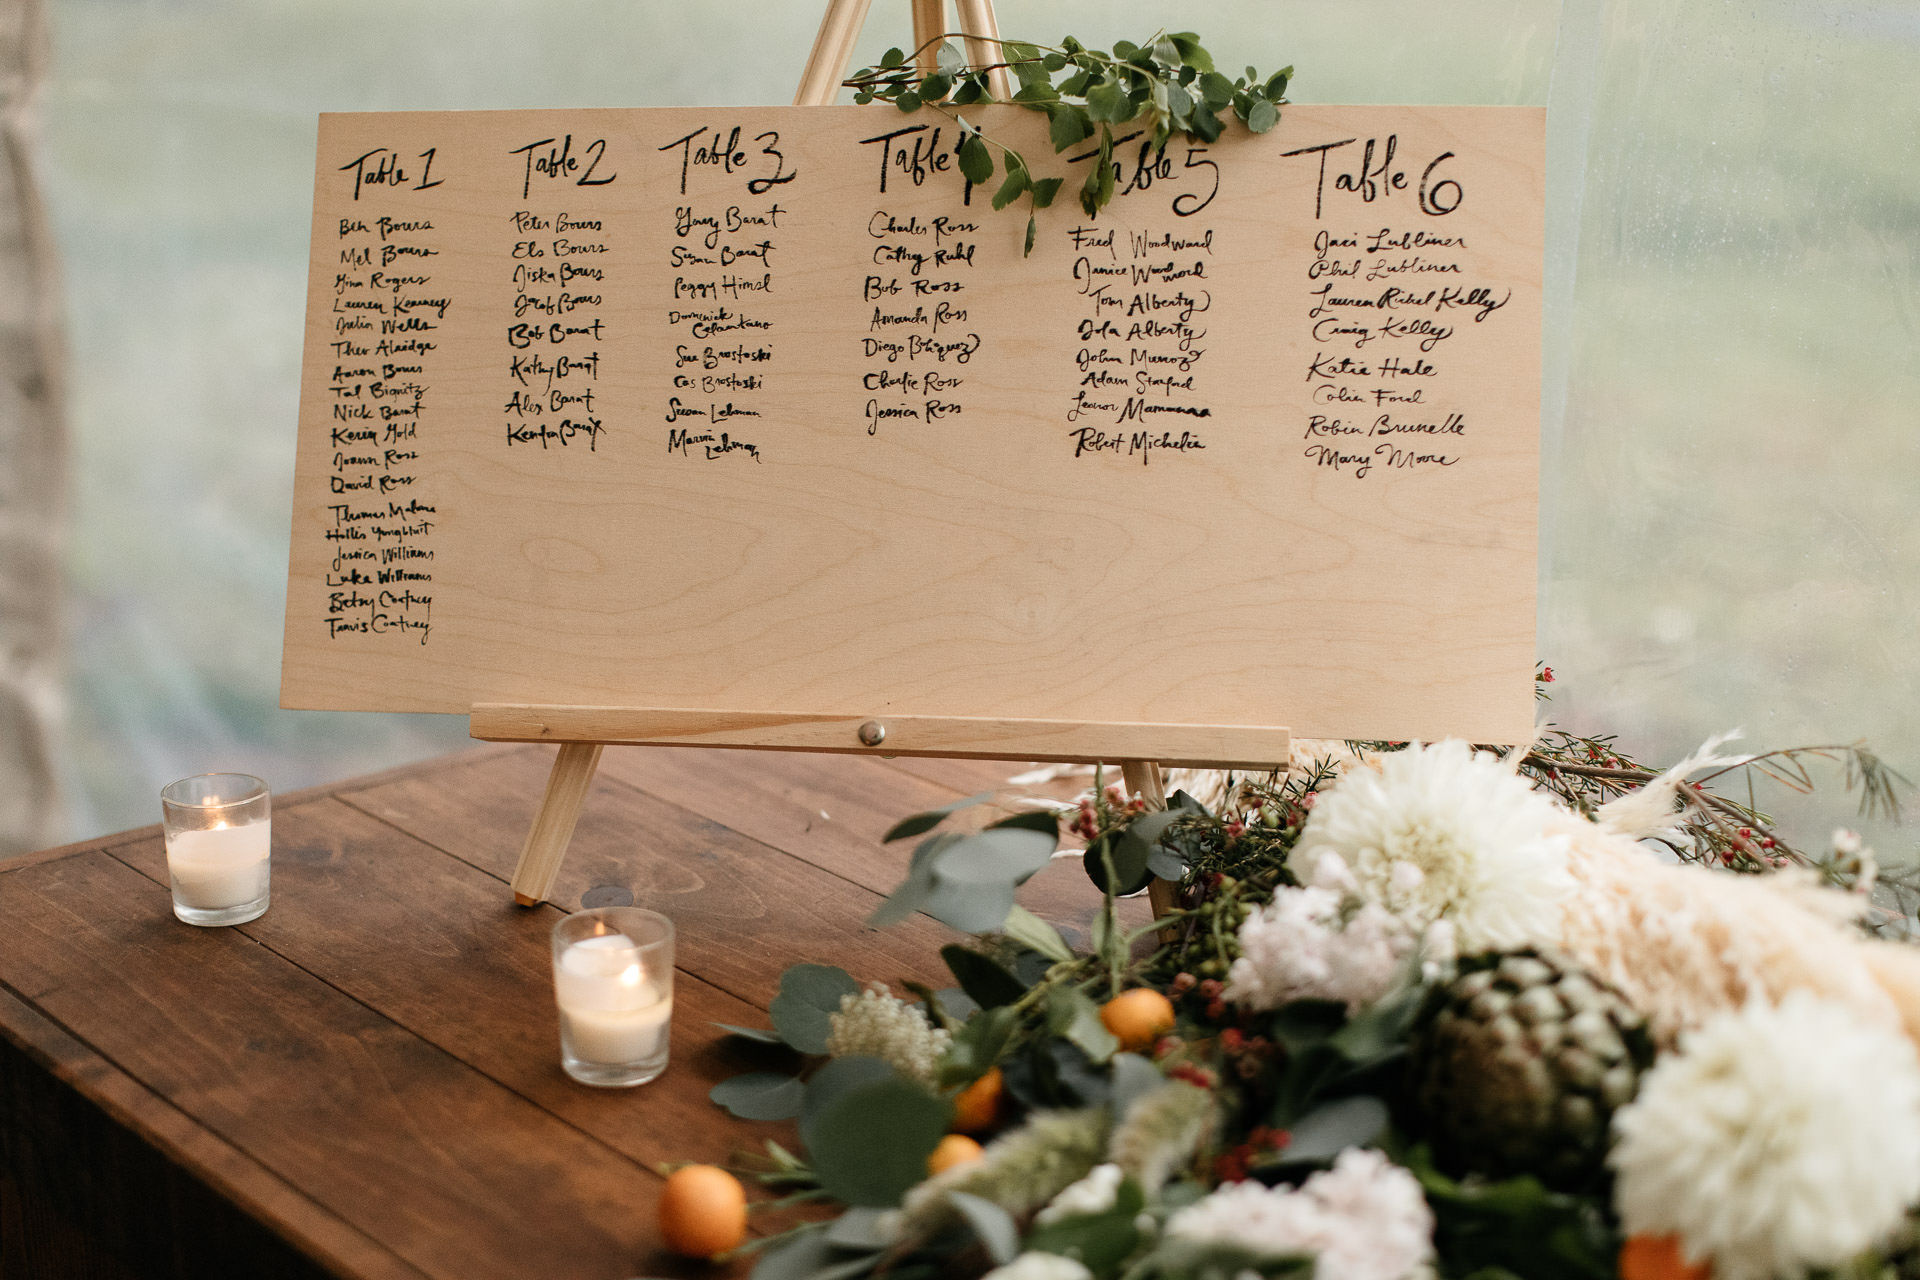 Table 1
Ben Bours
Mel Bours
Gina Rogers
Lauren Kearney
Julia Wells
Theo Alaidga
Aaron Bours
Tal Bignitz
Nick Barat
Kevin Gold
Joann Ross
David Ross
Thomas
Hollis Yungbluit
Jessica Williams
Luke Williams
Betsy Cortney
Travis Cortney
Table 2
Peter Bours
Els Bours
Jiska Bours
Jacob Bours
Bob Barat
Kathy Barat
Alex Barat
Kendra Barat
Table 3
Gary Barat
Susan Barat
Peggy Himsl
Dominick
Sue Brostoski
Cas Brostoski
Susan Lehman
Marvin
Lehman
Table 4
Charles Ross
Cathy Ruhl
Bob Ross
Amanda Ross
Diego
Charlie Ross
Jessica Ross
Table 5
Fred Woodward
Janice Woodword
Tom Alberty
Jola Alberty
John Munoz
Adam Stanford
Leonor
Robert Michelin
Table 6
Jaci Lubliner
Phil Lubliner
Lauren Kelly
Craig Kelly
Katie Hale
Colin Ford
Robin Brunelle
Mary Moore